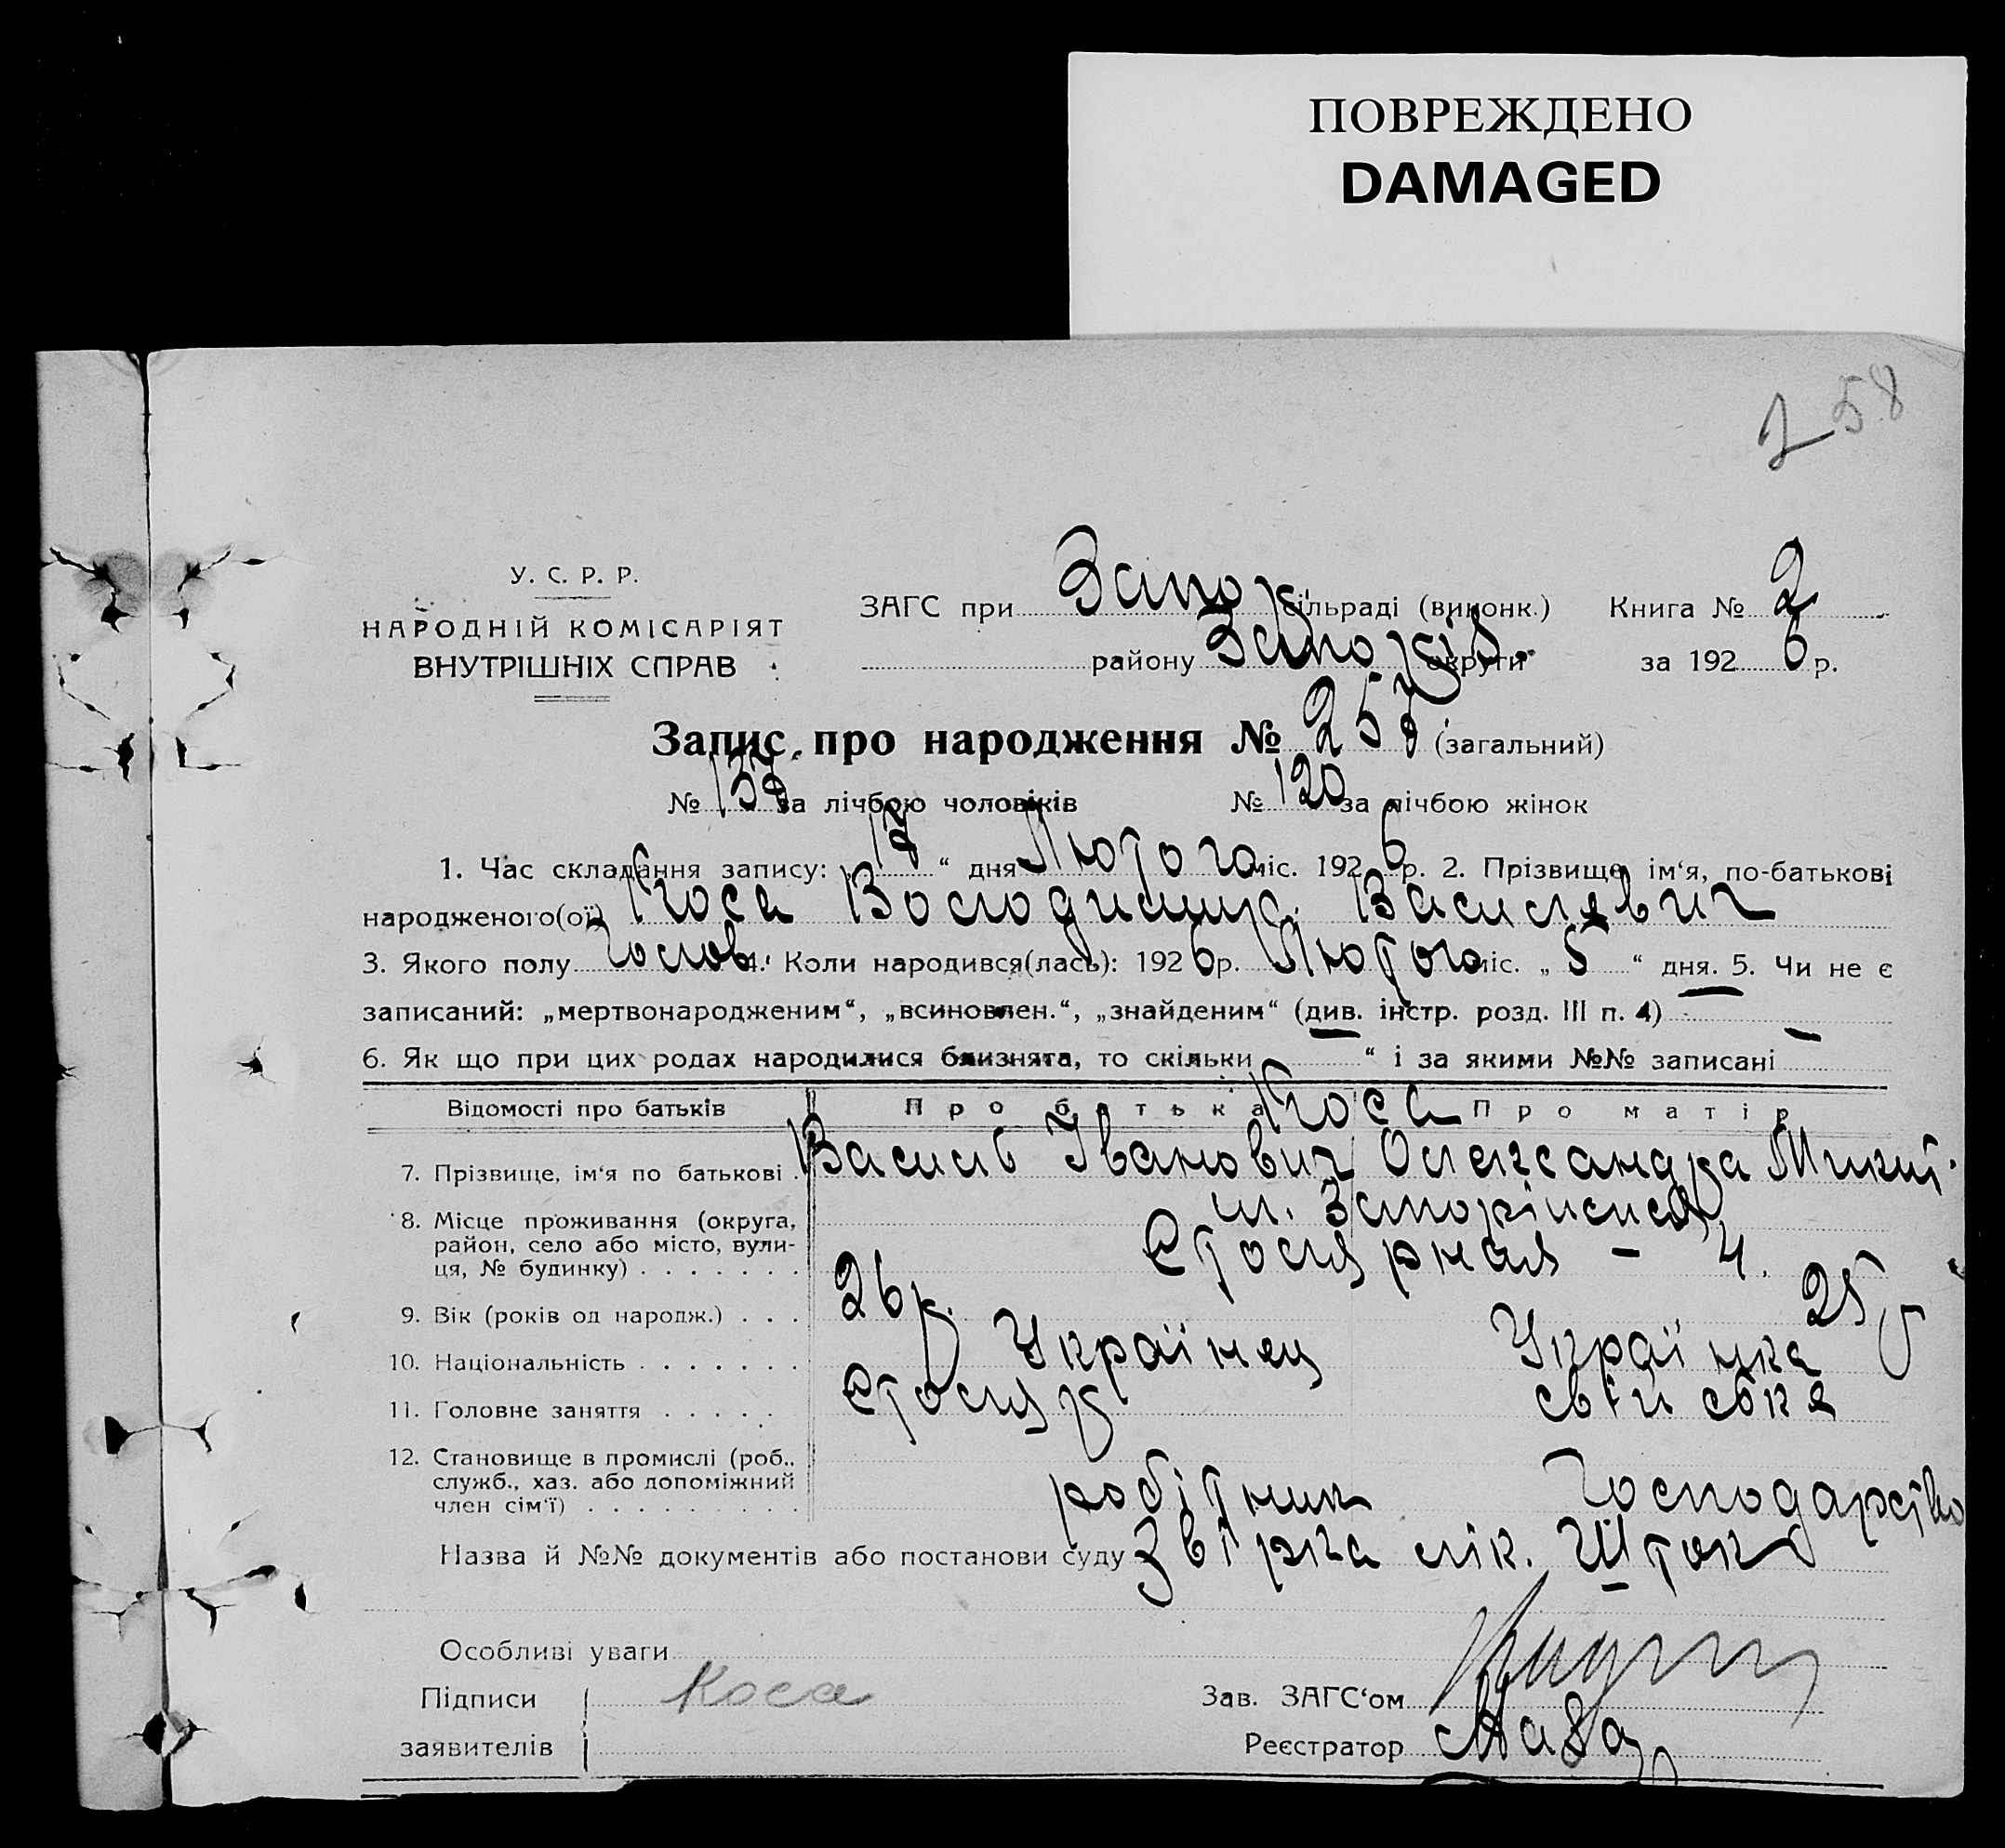 ПОВРЕЖДЕНО
DAMAGED
258
У. С. Р. Р.
НАРОДНІЙ КОМІСАРІЯТ
ВНУТРІШНІХ СПРАВ
ЗАГС при Запор сільраді (виконк.) Книга № 2
району Запоріз. округи за 192 6 р.
Запис про народження № 258 (загальний)
№ 138 за лічбою чоловіків № 120 за лічбою жінок
1. Час складання запису: „ “ дня Лютого міс. 192 6 р. 2. Прізвище, ім‘я, по-батькові
народженого(ої) Коса Володимир Васильевич
3. Якого полу Чолов. 4. Коли народився(лась): 192 6 р. Лютого міс. „ 5 “ дня. 5. Чи не є
записаний: „мертвонародженим“, „всиновлен.“, „знайденим“ (див. інстр. розд. III п. 4) —
6. Як що при цих родах народилися близнята, то скільки — “ і за якими №№ записані —
Відомості про батьків Про батька Коса Про матір
7. Прізвище, ім‘я по батькові . Василь Іванович Олександра Микит.
8. Місце проживання (округа,
район, село або місто, вули-
ця, № будинку) . . . . . . .
м. Запоріжжя
Столярная – 4.
9. Вік (років од народж.) . . . 26 р. 25
10. Національність . . . . . . . Українец Українка
11. Головне заняття . . . . . Столяр свій бке
12. Становище в промислі (роб..
служб., хаз. або допоміжний
член сім‘ї) . . . . . . . . . робітник Господарство
Назва й №№ документів або постанови суду Звірка лік. Шток
Особливі уваги
Підписи Коса Зав. ЗАГС‘ом
заявителів Реєстратор